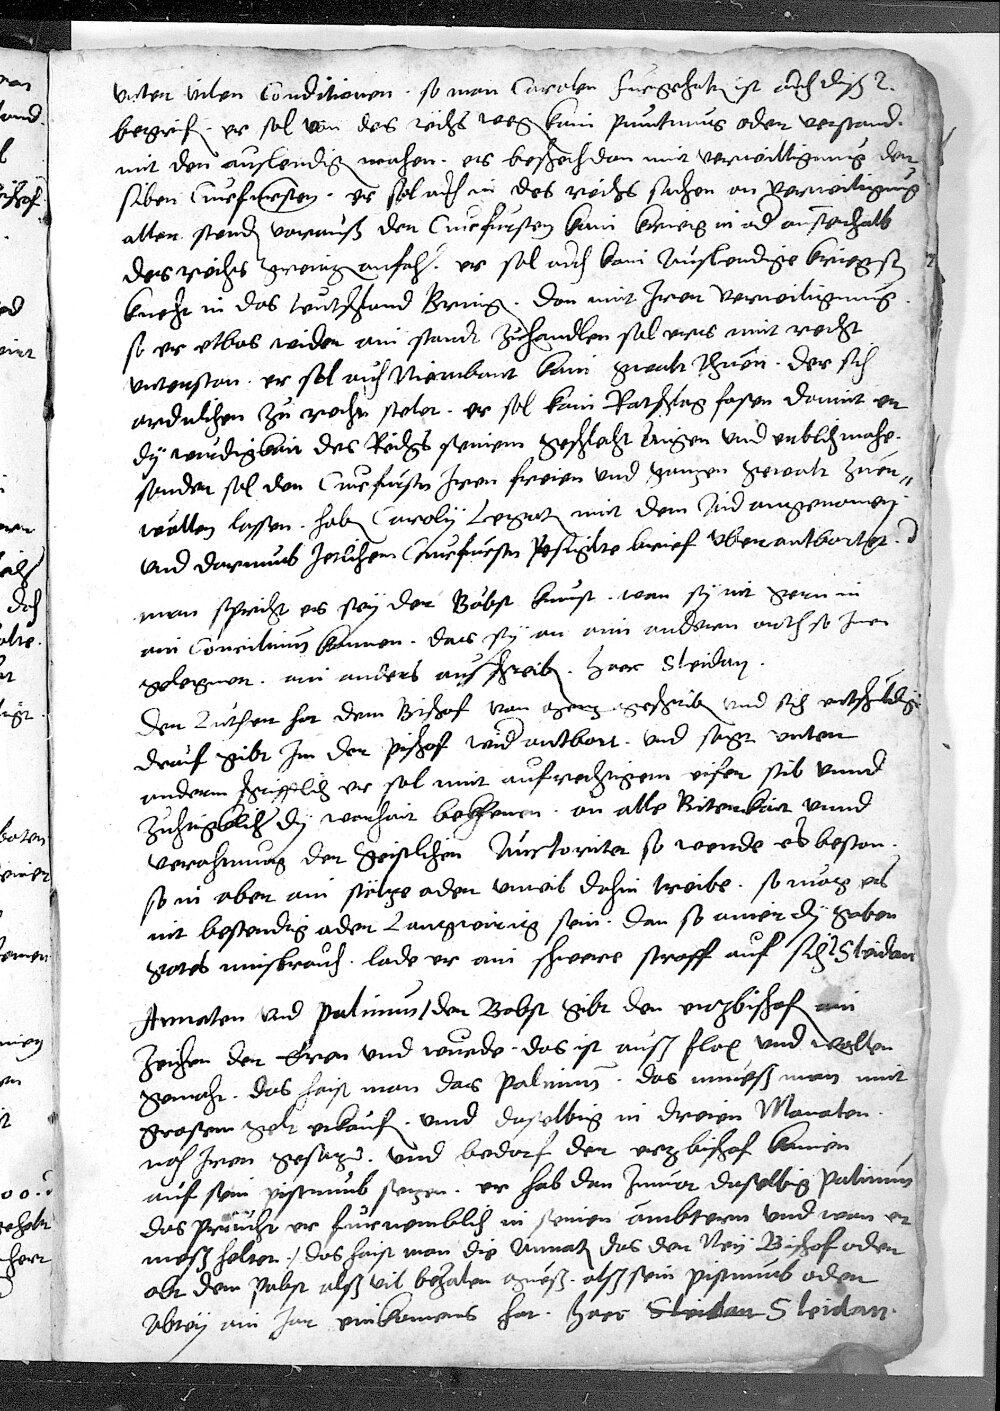 unter vilen Conditionen. so man Carolen furgehalten ist auch diss
begrif. er sol von des reichs weg kain puntnus oder verstand.
mit den auslendig machen. es beschech dan mit verwilligung der
siben Curfursten. er sol auch in des reichs sachen on verwiligung
aller stend voraus der Curfursten kain krieg in od ausserhalb
des reichs grenz anfach. er sol auch kain auslendigs kriegs
knecht in das teutschland bring. dan mit Irer verwiligung.
so er etbas wider ain stand zuhandlen sol ers mit recht
unterstan. er sol auch Niembant kain gwalt thuen. der sich
ordnlichen zu recht stelet. er sol kain Ratschlag fasen damit er
dy wurdigkait des Reichs seinem geschlecht aigen und erblich mache.
sonder sol den Curfursten Iren freien und ganzen gewalt zu er
wöllen lassen. hab Caroly Legat mit dem Aid angenomen
und darumb Jetlichem Curfursten besiglte brief uberantbortet.
man spricht es sey der Bäbst kunst. wan sy nit gern in
ain Concilium kumen. das sy an ain anderen orth so Inen
gelegner. ain anders ausschreib. haec Sleidan.
Der Luther hat dem Bischof von Menz geschrib und sich entschuldig
drauf gibt Im der pischof wider antbort. und sagt unter
anderm schrifftlich er sol mit aufrechtigem eifer stil unnd
zuchtigklich dy warhait bekhenen. on alle Bitterkait unnd
verachtnung der geistlichen Auctoritet so werde es beston.
so in aber ain stölze oder unwil dahin treibe. so mög es
nit bestendig oder Langwirig sein. dan so ainer dy gaben
gotes misbrauch. lade er ain schwere straff auf sich Sleidan
Annaten und palium / der Bobst gibt den erzbischof ain
zeichen der Eren und wurde. das ist auss flax und wollen
gemacht. das haist man das palium. das muess man mit
grosem gelt erkauf. und dasselbig in dreien Monaten.
nach Iren gesaz. und bedorf der erzbischof kainen
auf sein pistumb sezen. er hab dan zuvor dasselbig palium
das praucht er furnemblich in seinen ämbtern und wan er
mess haltet. / das haist man die Annat das der Neu Bischof oder
abt dem pabst alss vil bezalen muess. alss sein pistumb oder
Abtey ain Jar einkomens hat. haec Sleidan Sleidan.